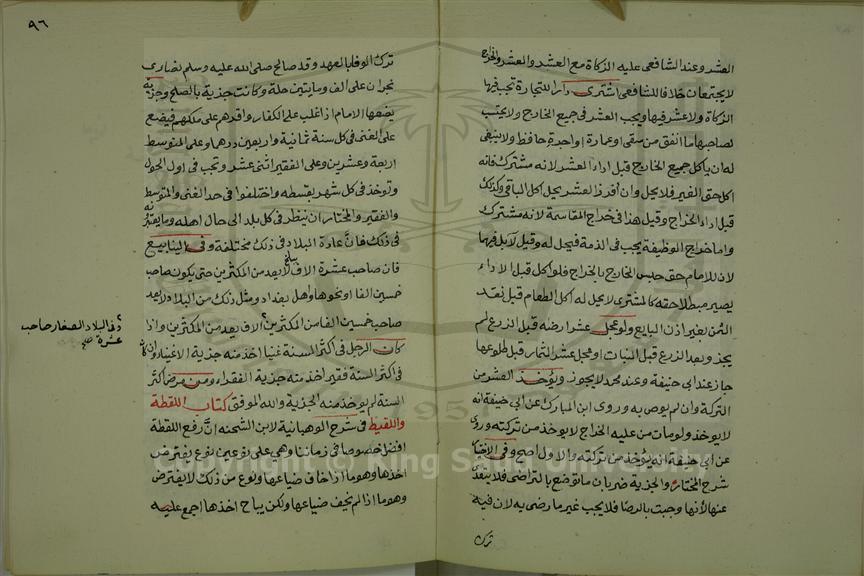 العشر وعند الشافعى عليه الزكاة مع العشر والعشر والخراج
لا يجتمعان خلافا للشافعى اشترى دارا للتجارة تجب فيها
الزكاة ولا عشر فيها ويجب العشر فى جميع الخارج ولا يحتسب
لصاحبها ما انفق من سقى او عمارة او اجرة حافظ ولا ينبغى
له ان ياكل جميع الخارج قبل اداء العشر لانه مشترك فانه
اكل حق الغير فلا يحل وان افرز العشر يحل اكل الباقى وكذلك
قبل اداء الخراج وقيل هذا فى خراج المقاسمة لانه مشترك
واما خراج الوظيفة يجب فى الذمة فيحل له وقيل لا يحل فيهما
لان للامام حق حبس الخارج بالخراج فلو اكل قبل الاداء
يصير مبطلا حقه كالمشترى لا يحل له اكل الطعام قبل نقد
الثمن بغير اذن البايع ولو عجل عشر ارضه قبل الزرع لم
يجز وبعد الزرع قبل النبات او عجل عشر الثمار قبل طلوعها
جاز عند ابى حنيفة وعند محمد لا يجوز ويؤخذ العشر من
التركة وان لم يوص به وروى ابن المبارك عن ابى حنيفة انه
لا يوخذ ولو مات من عليه الخراج لا يوخذ من تركته وروى
عن ابى حنيفة انه يؤخذ من تركته والاول اصح وفى الاختيار
شرح المختار والجزية ضربان ما توضع بالتراضى فلا يتعدى
عنها لأنها وجبت بالرضا فلا يجب غير ما رضى به لان فيه
ترك
٩٦
ترك الوفا بالعهد وقد صالح صلى الله عليه وسلم نصارى
نجران على الف ومايتين حلة وكانت جذية بالصلح وجزية
يضعها الامام اذا غلب على الكفار واقرهم على ملكهم فيضع
على الغنى فى كل سنة ثمانية واربعين درهما وعلى المتوسط
اربعة وعشرين وعلى الفقير اثنى عشر وتجب فى اول الحول
وتوخذ فى كل شهر بقسطه واختلفوا فى حد الغنى والمتوسط
والفقير والمختار ان ينظر فى كل بلد الى حال اهله وما يعتبرونه
فى ذلك فان عادة البلاد فى ذلك مختلفة وفى الينابيع
فان صاحب عشرة الاف ببلخ يعد من المكثرين حتى يكون صاحب
خمسين الفا او نحوها واهل بغداد ومثل ذلك من البلاد لا يعد
صاحب خمسين الفا من المكثرين الاف يعد من المكثرين واذا
كان الرجل فى اكثر السنة غنيا اخذ منه جذية الاغنيا وان كان
فى اكثر السنة فقير اخذ منه جذية الفقراء ومن مرض اكثر
السنة لم يوخذ منه الجذية والله الموفق كتاب اللقطة
واللقيط فى شرح الوهبانية لابن الشحنه ان رفع اللقطة
افضل خصوصا فى زماننا وهى على نوعين نوع يفترض
اخذها وهو ما اذا خاف ضياعها ونوع من ذلك لا يفترض
وهو ما اذا لم يخف ضياعها ولكن يباح اخذها اجمع عليه
وفى البلاد الصغار صاحب
عشرة صح
Copyright © King Saud University
1957